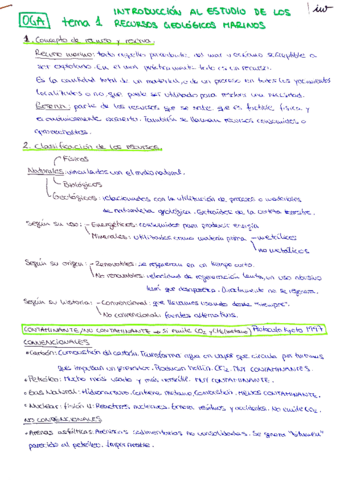 OGA
INTRODUCCIÓN AL ESTUDIO DE LOS
tema 1 RECURSOS GEOLÓGICOS MARINOS
1. Concepto de recurso y reserva
Recurso marino: todo aquello del mar u océano susceptible a
ser explotado. En el mar prácticamente todo es un recurso.
Es la cantidad total de un material o de un proceso en todos los yacimientos
localizados o no, que puede ser utilizado para resolver una necesidad.
Reserva: parte de los recursos que se sabe que es factible física y
económicamente
2. Clasificación de los recursos
Físicos
Naturales: vinculados con el medio natural.
Biológicos
Geológicos: relacionados con la utilización de procesos o materiales
de naturaleza geológica. Extraídos de la corteza terrestre.
Según su uso: - Energéticos: consumidos para producir energía
Minerales: utilizados como materia prima - metálicos
no metálicos
Según su origen: - Renovables: se regeneran en un tiempo corto.
No renovables: velocidad de regeneración lenta, un uso abusivo
hará que desaparezca. Directamente no se regenera.
Según su historia: - Convencional: que llevamos usando desde "siempre".
No convencional: fuentes alternativas.
CONTAMINANTE/NO CONTAMINANTE → Si emite CO2 y CH4 (metano) Protocolo Kyoto 1997
CONVENCIONALES
• Carbón: Combustión del carbón. Transforma agua en vapor que circula por turbinas
que impulsan un generador. Producen hollín, CO2. MUY CONTAMINANTES.
• Petróleo: Mucho más usado y más versátil. MUY CONTAMINANTE.
• Gas Natural: Hidrocarburos. Contiene metano. Combustión. MENOS CONTAMINANTE.
• Nuclear: fisión U. Reactores nucleares. Genera residuos y accidentes. No emite CO2.
NO CONVENCIONALES
• Arenas asfálticas: Areniscas sedimentarias no consolidadas. Se genera "bitumen"
parecido al petróleo. Impermeable.